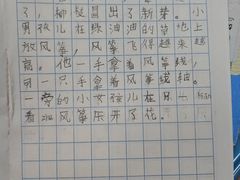 了，柳枝冒出了新芽。小
男孩儿在绿油油的草地上
放风筝，风筝飞得越来越
高。他一手拿着风筝线，
另一只手拿着风筝线轴。
一旁的小女孩儿在
看 风筝乐开了花。